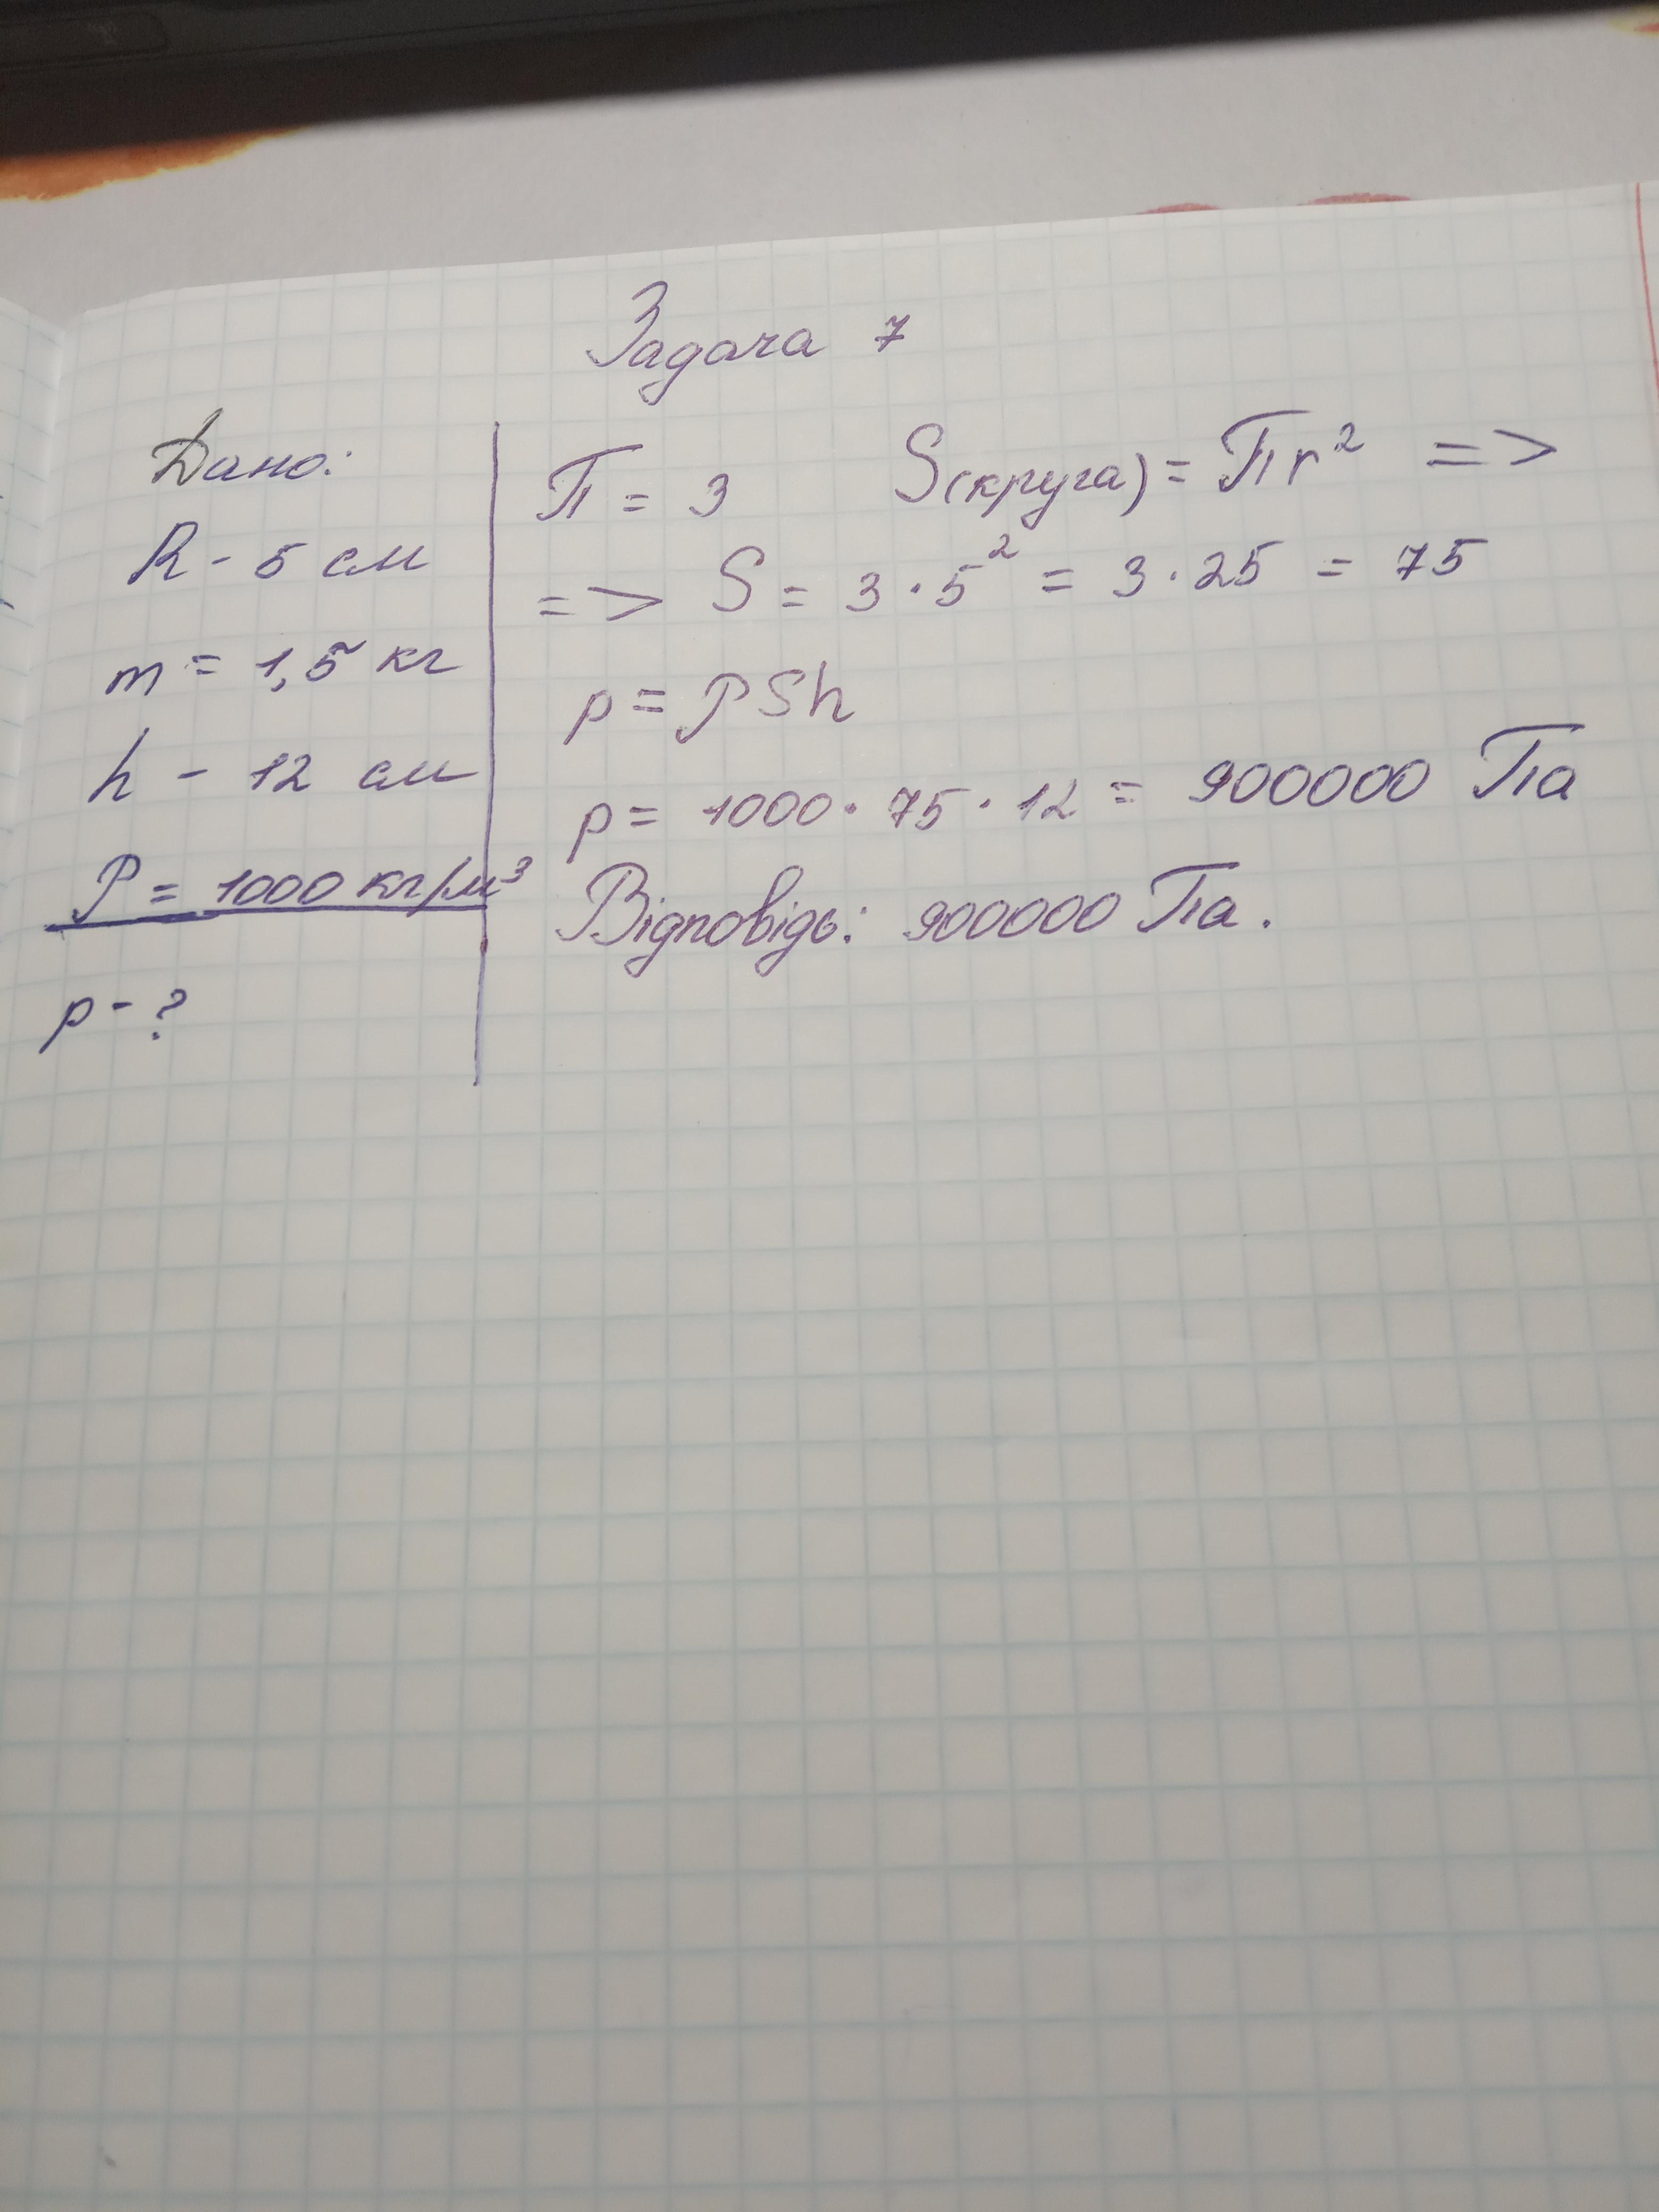 Задача 7
Дано:
R - 5 см
m = 1,5 кг
h - 12 см
P = 1000 кг/м³
p - ?
П = 3 S(круга) = Пr² =>
=> S = 3 · 5² = 3 · 25 = 75
p = PSh
p = 1000 · 75 · 12 = 900000 Па
Відповідь: 900000 Па.